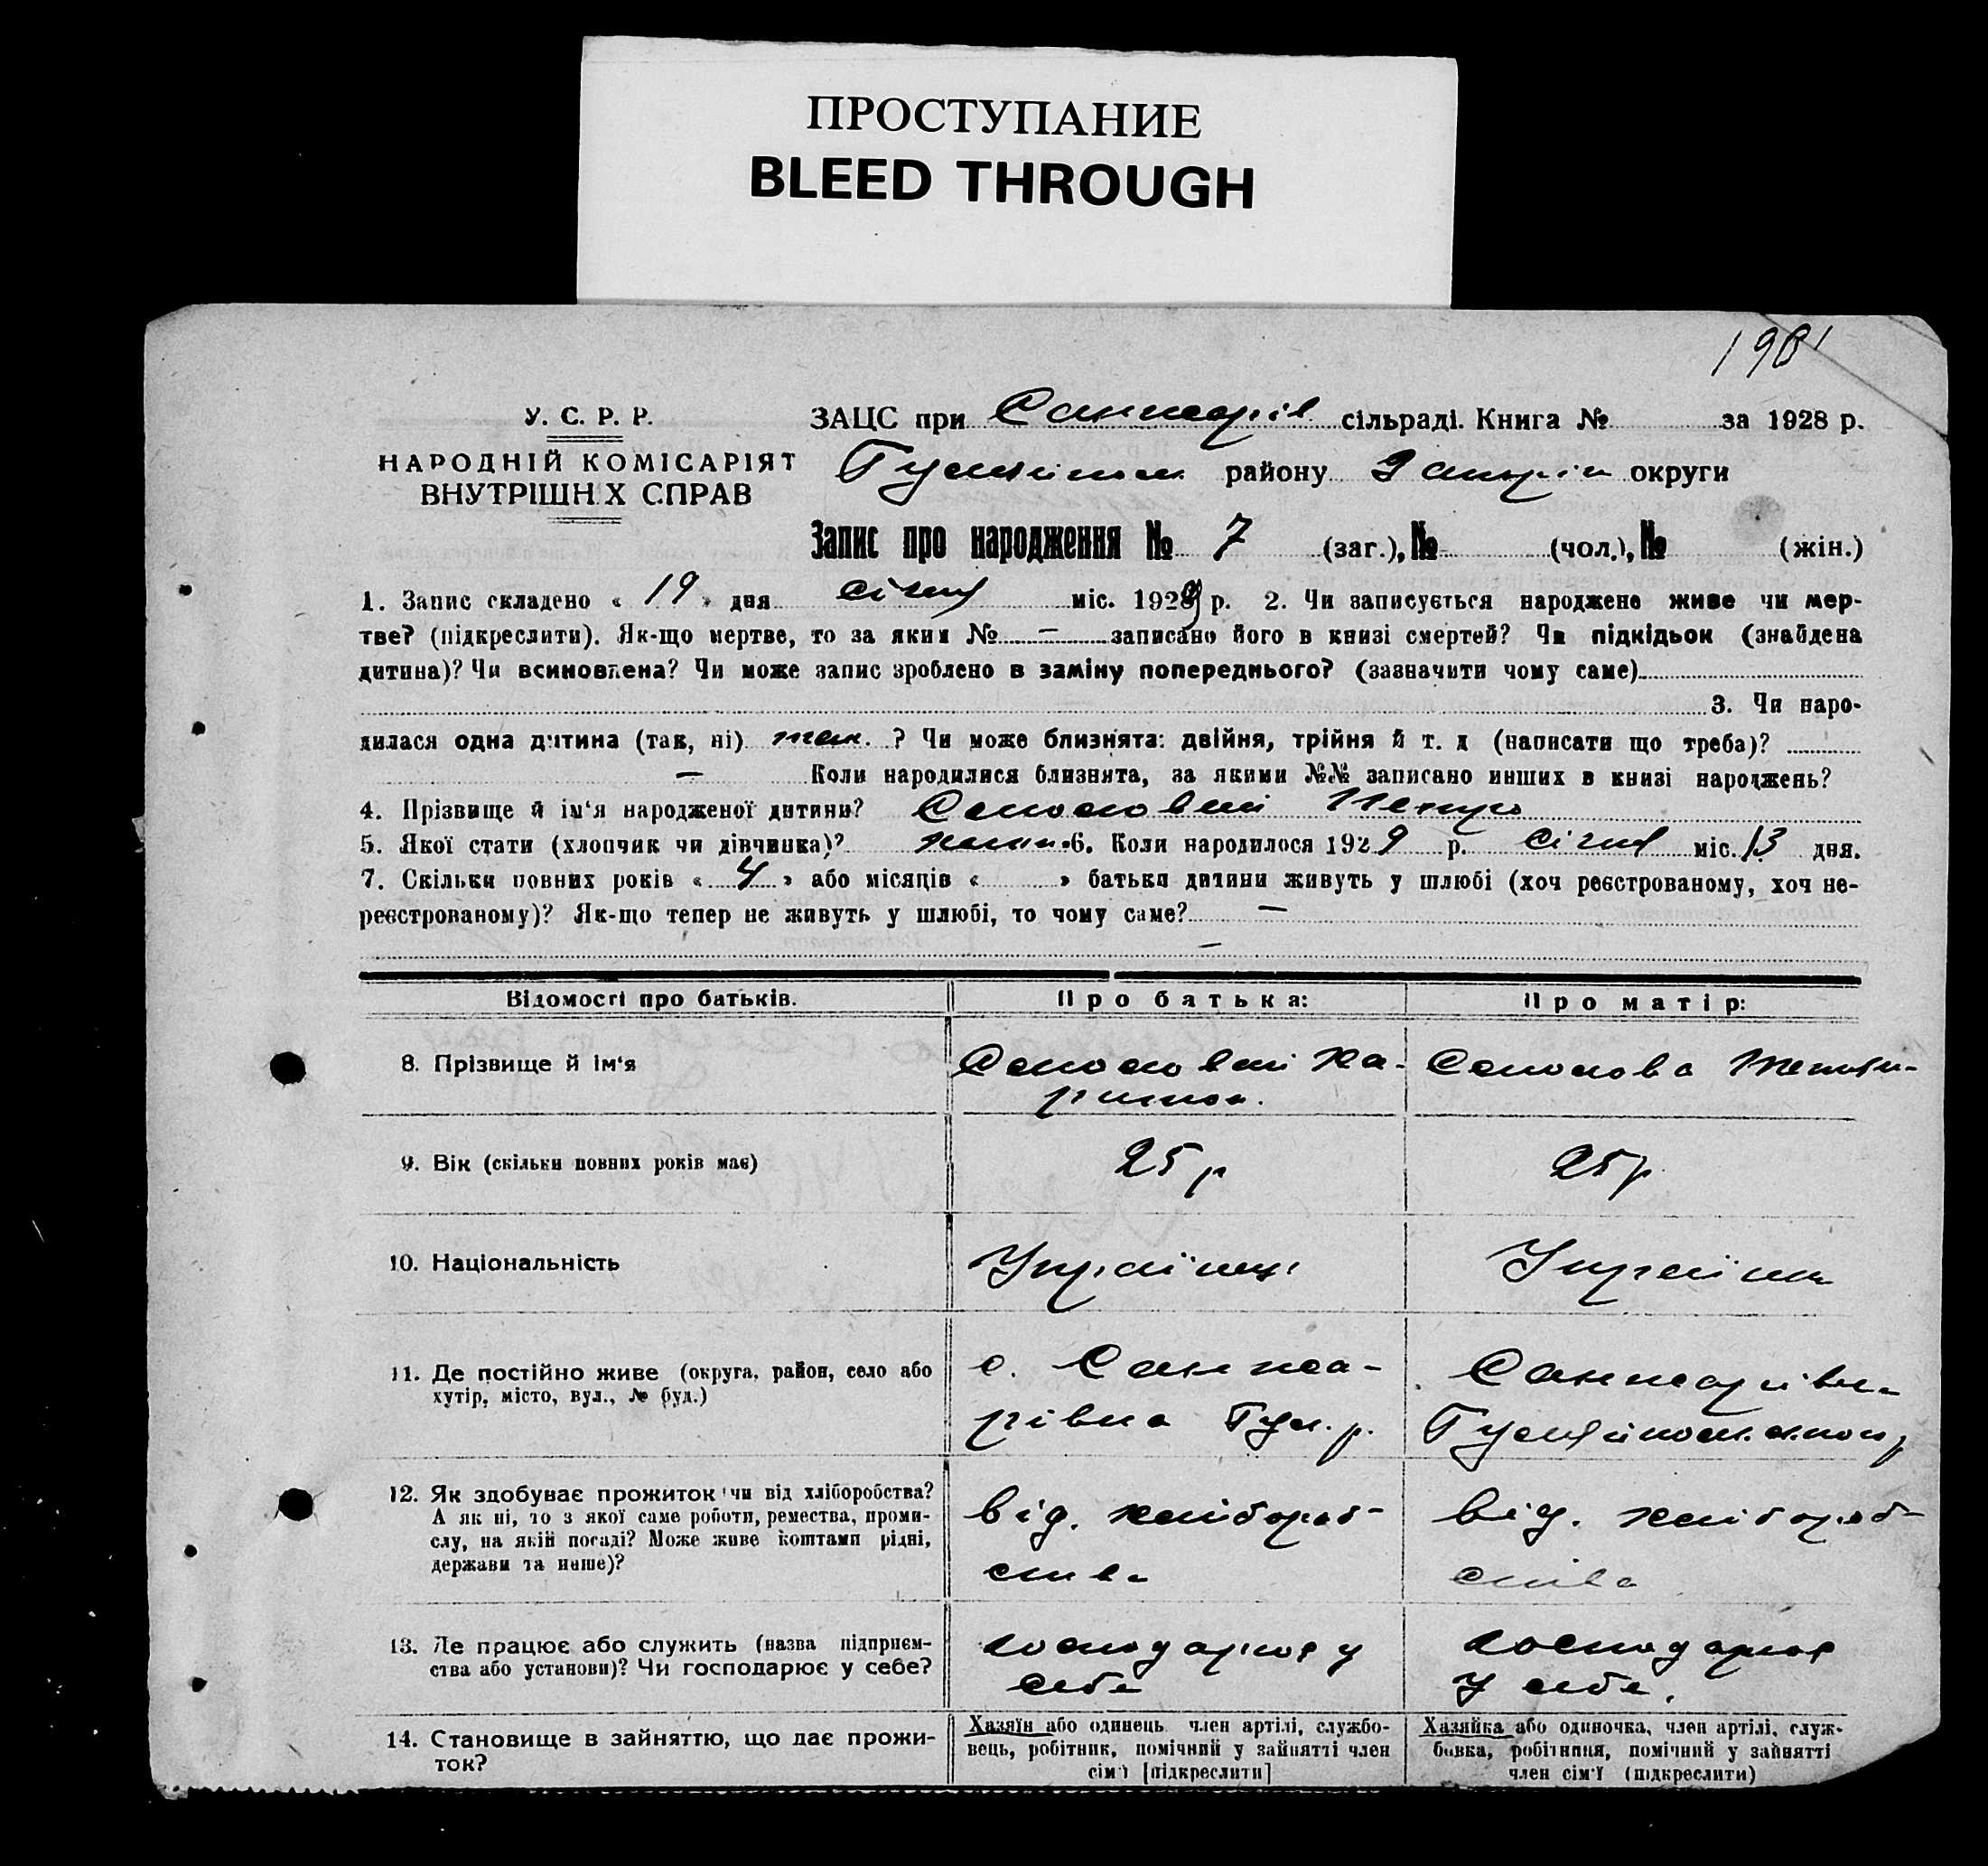 ПРОСТУПАНИЕ
BLEED THROUGH
У. С. Р. Р.
НАРОДНІЙ КОМІСАРІЯТ
ВНУТРІШН Х СПРАВ
ЗАЦС при Санжарів сільраді. Книга № за 1928 р.
району округи
Запис про народження № 7 (заг.), № (чол.), № (жін.)
1. Запис складено « 19 » дня січня міс. 1929 р. 2. Чи записується народжене живе чи мер-
тве? (підкреслити). Як-що мертве, то за яким № — записано його в книзі смертей? Чи підкідьок (знайдена
дитина)? Чи всиновлена? Чи може запис зроблено в заміну попереднього? (зазначити чому саме)
3. Чи наро-
дилася одна дитина (так, ні) так. ? Чи може близнята: двійня, трійня й т. д (написати що треба)?
— Коли народилися близнята, за якими №№ записано инших в книзі народжень?
4. Прізвище й ім‘я народженої дитини? Петро
5. Якої стати (хлопчик чи дівчинка)? 6. Коли народилося 1929 р. січня міс. 13 дня.
7. Скільки повних років « 4 » або місяців « » батьки дитини живуть у шлюбі (хоч реєстрованому, хоч не-
реєстрованому)? Як-що тепер не живуть у шлюбі, то чому саме? —
—
Відомості про батьків. Про батька: Про матір:
8. Прізвище й ім‘я
9. Вік (скільки повних років має) 25 р 25 р
10. Національність
11. Де постійно живе (округа, район, село або хутір, місто, вул., № буд.)
с. Санжа-
рівка Гул. р.
Санжарівка
12. Як здобуває прожиток чи від хліборобства?
А як ні, то з якої саме роботи, ремества, проми-
слу, на якій посаді? Може живе коштами рідні,
держави та инше)?
від. хлібороб-
ства
від. хлібороб-
ства
13. Де працює або служить (назва підприєм-
ства або установи)? Чи господарює у себе?
господарює у
себе
господарює
у себе.
14. Становище в зайняттю, що дає прожи-
ток?
Хазяїн або одинець член артілі, службо-
вець, робітник, помічний у зайнятті член
сім‘ї [підкреслити]
Хазяйка або одиночка, член артілі, служ-
бовка, робітниця, помічний у зайнятті
член сім‘ї (підкреслити)